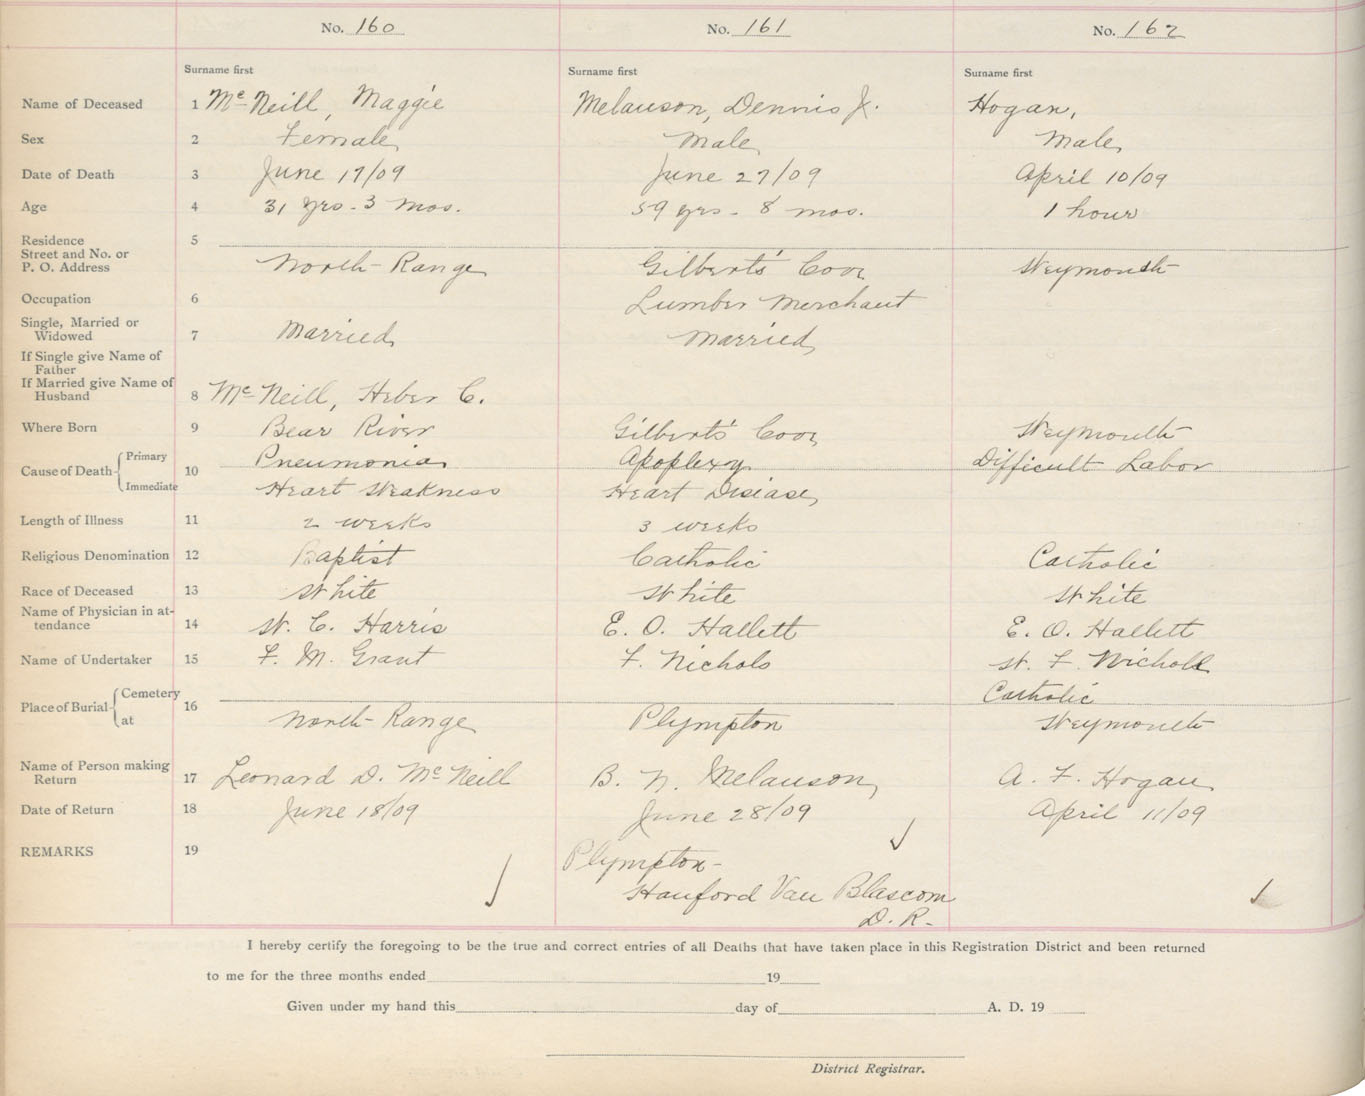 No. 160 No. 161 No. 162
Surname first Surname first Surname first
Name of Deceased 1 McNeill, Maggie Melanson, Dennis J. Hogan,
Sex 2 Female Male Male
Date of Death 3 June 17/09 June 27/09 April 10/09
Age 4 31 yrs - 3 mos. 59 yrs - 8 mos. 1 hour
Residence 5
Street and No. or
P. O. Address North-Range Gilbert's Cove Weymouth
Occupation 6 Lumber Merchant
Single, Married or
Widowed 7 Married Married
If Single give Name of
Father
If Married give Name of
Husband 8 McNeill, Heber C.
Where Born 9 Bear River Gilbert's Cove Weymouth
Cause of Death 10 Primary Pneumonia Apoplexy Difficult Labor
Immediate Heart Weakness Heart Disease
Length of Illness 11 2 weeks 3 weeks
Religious Denomination 12 Baptist Catholic Catholic
Race of Deceased 13 White White White
Name of Physician in at-
tendance 14 W. C. Harris E. O. Hallett E. O. Hallett
Name of Undertaker 15 F. M. Grant F. Nichols W. F. Nicholl
Place of Burial 16 Cemetery Catholic
at North-Range Plympton Weymouth
Name of Person making
Return 17 Leonard D. McNeill B. N. Melanson A. F. Hogan
Date of Return 18 June 18/09 June 28/09 April 11/09
REMARKS 19 Plympton-
Hanford Van Blascom
D. R-
I hereby certify the foregoing to be the true and correct entries of all Deaths that have taken place in this Registration District and been returned
to me for the three months ended 19
Given under my hand this day of A. D. 19
District Registrar.